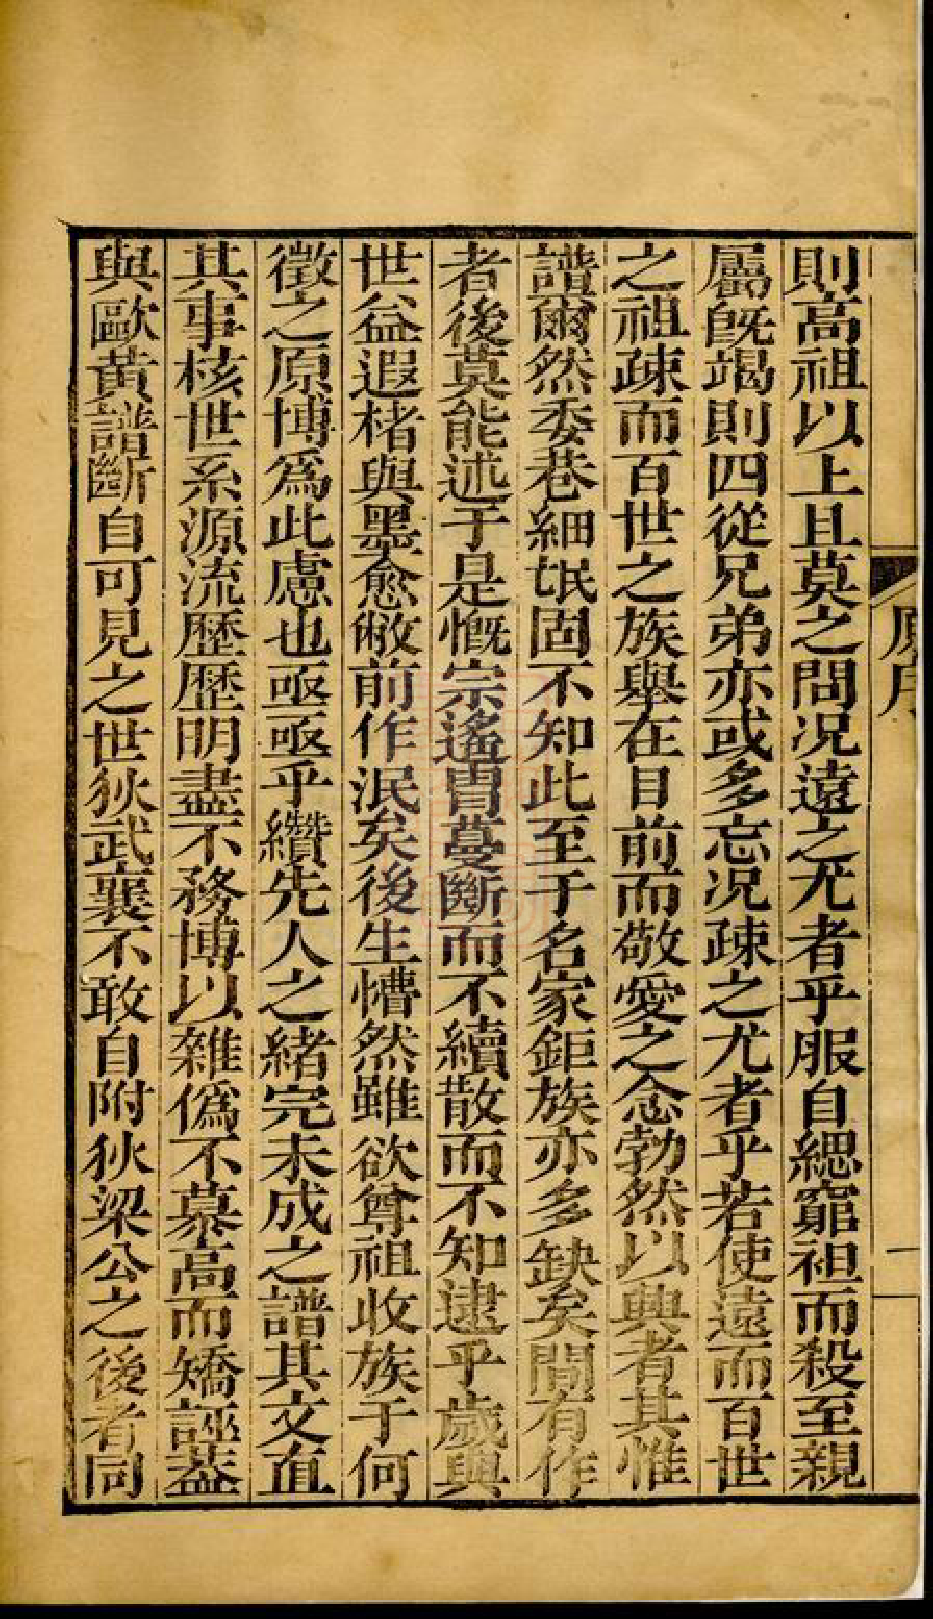 原序
一
則高祖以上且莫之問况遠之尤者乎服自緦竆袒而殺至親
屬旣竭則四從兄弟亦或多忘况疎之尤者乎若使遠而百世
之祖疎而百世之族舉在目前而敬愛之念勃然以興者其惟
譜爾然委巷細氓固不知此至于名家鉅族亦多缺矣間有作
者後莫能述于是慨宗遙胄蔓斷而不續散而不知逮乎歲與
世益遐楮與墨愈敝前作泯矣後生懵然雖欲尊祖收族于何
徵之原博爲此慮也亟亟乎纘先人之緒完未成之譜其文直
其事核世系源流歷歷明盡不務博以雜僞不慕高而矯誣蓋
與歐黃譜斷自可見之世狄武襄不敢自附狄梁公之後者同